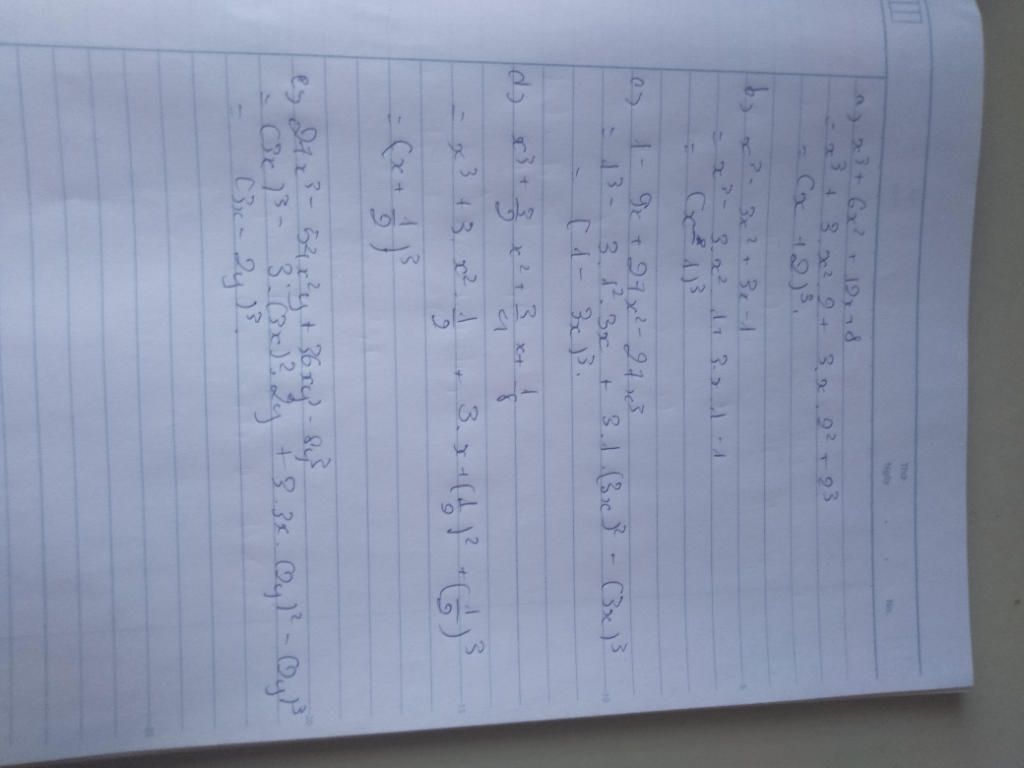 Thứ
Ngày . . No.
a) x³ + 6x² + 12x + 8
= x³ + 3.x².2 + 3.x.2² + 2³
= (x + 2)³.
b) x³ - 3x² + 3x - 1
= x³ - 3x².1 + 3.x.1 - 1
= (x - 1)³
c) 1 - 9x + 27x² - 27x³
= 1³ - 3.1².3x + 3.1.(3x)² - (3x)³
= (1 - 3x)³.
d) x³ + 3/2 x² + 3/4 x + 1/8
= x³ + 3.x².1/2 + 3.x+(1/2)² + (1/2)³
= (x + 1/2)³
e) 27x³ - 54x²y + 36xy² - 8y³
= (3x)³ - 3.(3x)².2y + 3.3x.(2y)² - (2y)³
= (3x - 2y)³.